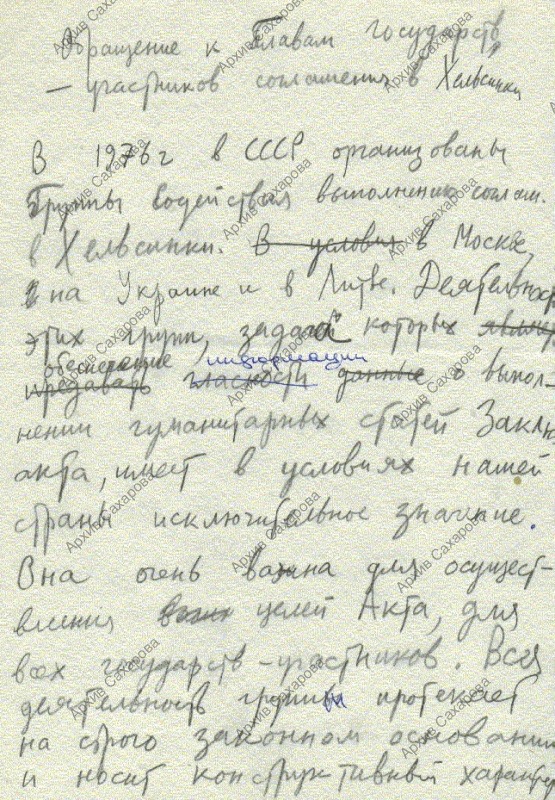 Обращение к Главам государств,
– участников соглашения в Хельсинки
В 1976 г в СССР организованы
Группы содействия выполнению соглаш.
в Хельсинки. В условия в Москве,
на Украине и в Литве. Деятельность
этих групп, задача которых
обеспечение информации
предавать гласности данные о выпол-
нении гуманитарных статей Заключ
акта, имеет в условиях нашей
страны исключительное значение.
Она очень важна для осущест-
вления всех целей Акта, для
всех государств-участников. Вся
деятельность группы протекает
на строго законном основании
и носит конструктивный характер
Архив Сахарова